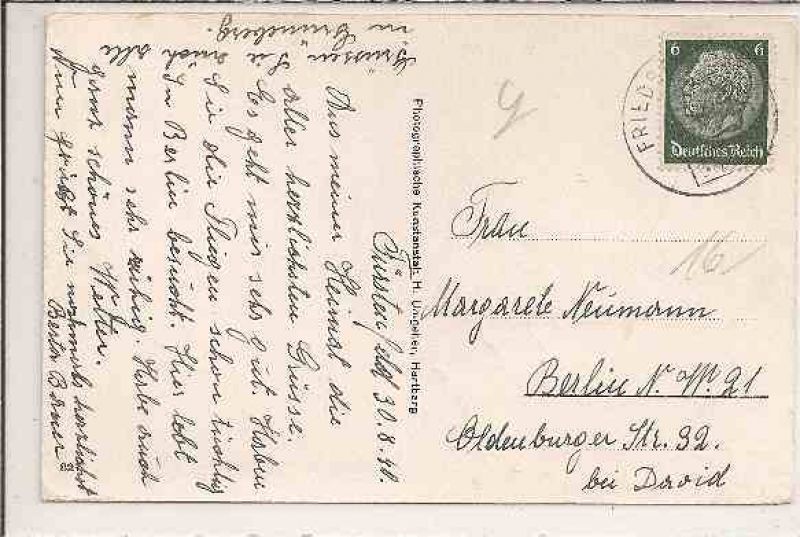 Fürstenfeld 30.8.40.
Aus meiner Heimat die
aller herzlichsten Grüsse.
Es geht mir sehr gut. Haben
Sie die Flieger schon tüchtig
in Berlin besucht. Hier lebt
mann sehr ruhig. Habe auch
ganz schönes Wetter.
Nun grüßt Sie nochmals herzlichst
Berta
Grüssen Sie auch alle
in Grüneberg.
82
Photographische Kunstanstalt H. Umgeher, Hartberg
6 6
Deutsches Reich
FRIED
Frau
16
Margarete Neumann
Berlin N. W. 21
Oldenburger Str. 32.
bei David